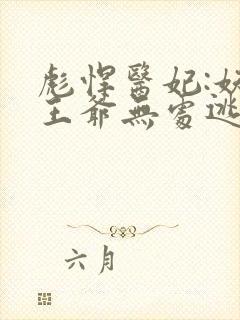 彪悍醫妃:妖
王爺無處逃
六月